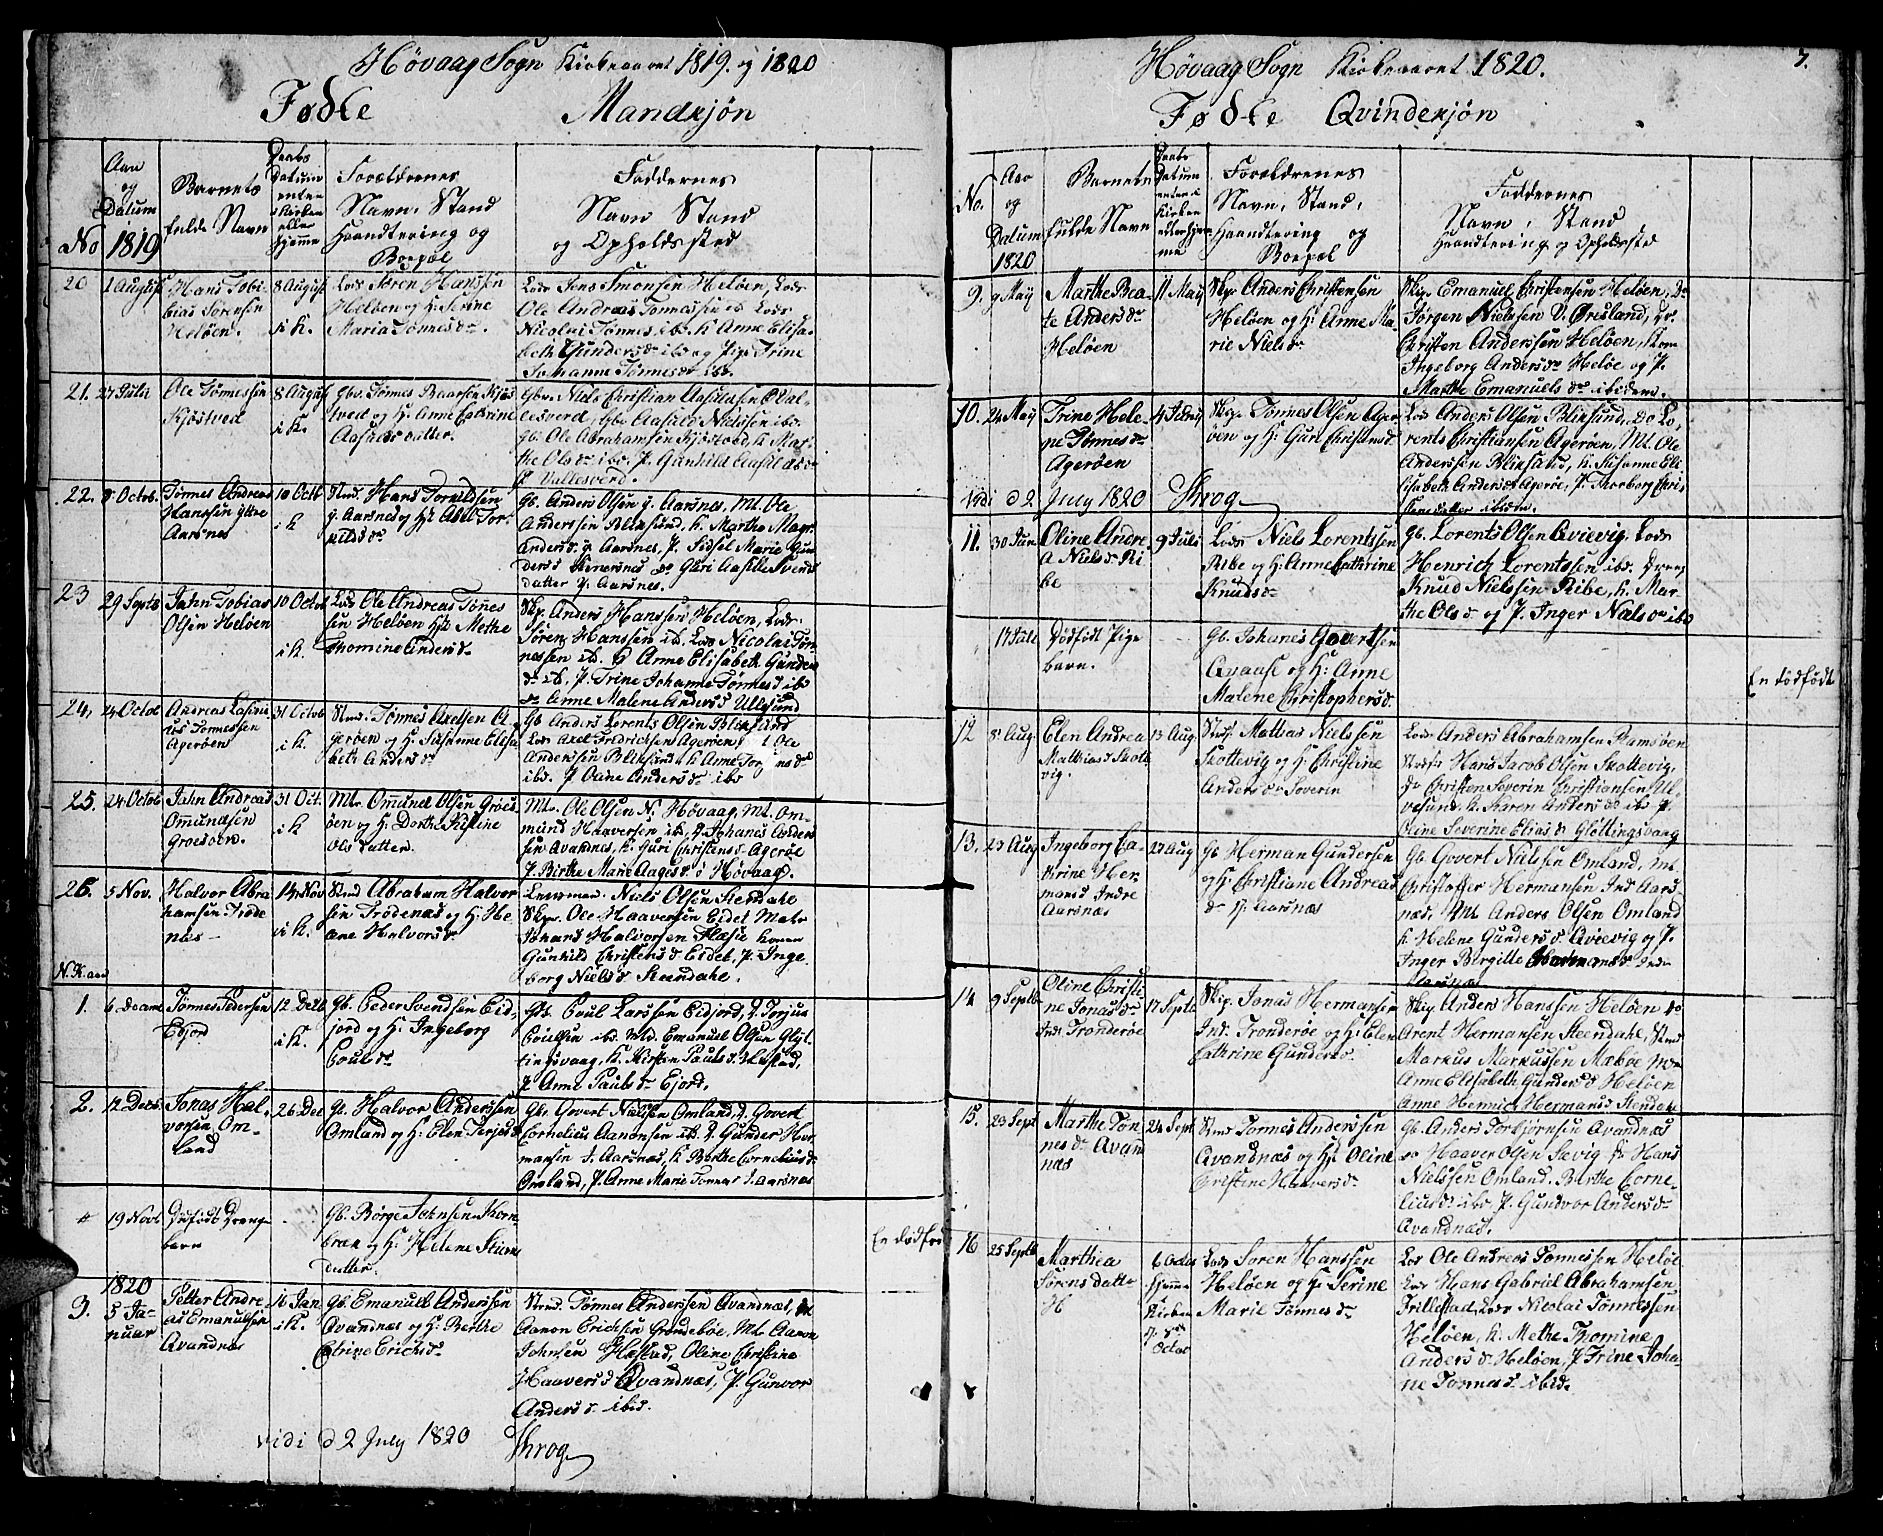 Høvaag Sogn Kirkeaaret 1819. og 1820
Fødte Mandkjøn
No
Aar
og
Datum
1819
Barnets
fulde Navn
Daabs
Datum
enten
i Kirken
eller
hjemme
Forældrenes
Navn, Stand
Haandtering og
Boepæl
Faddernes
Navn Stand
og Opholdssted
20
1 August
Hans Tobi-
bias Sørensen
Heløen.
8 August
i K.
Lods Søren Hanssen
Heløen og H. Serine
Maria Tønnesdr.
Lods Jens Simonsen Heløen, Lods
Ole Andreas Tønnessen ib Lods
Nicolai Tønnes. ibs. K Anne Elisa-
beth Gundersdr ibs og Pige Trine
Johanne Tønnesdr ibs.
21.
27 Julii
Ole Tønnessen
Kjøstved
8 August
i K.
Gbr. Tønnes Baarsen Kjøs
tved og H. Anne Catrine
Aasulsdatter.
Gbr. Niels Christian Aasulsen Val-
lesverd, Gbr Aasuld Nielsen ibs.
Gb. Ole Abrahamsen Kjøstved, K. Mar-
the Olsdr ibs. P. Gunhild Aasuldsdr
Vallesverd.
22.
8 Octob.
Tønnes Andreas
Hanssen yttre
Aarsnes
10 Octb
i k
Strmd. Hans Torkildsen
y. Aarsnes og H. Abel Tor-
kildsdr
Gb. Anders Olsen y. Aarsnes, Mt. Ole
Anderssen Bliksund, K. Marthe Magr.
Andersd. y Aarsnes, P. Sidsel Marie Gun
dersd
datter y. Aarsnes.
23
29 Septb
Jahn Tobias
Olsen Heløen
10 Octob
i k.
Lods Ole Andreas Tønes
sen Heløen H. Methe
Thomine Andersdr
Skp. Anders Hanssen Heløen, Lods
Søren Hanssen ib. Lods Nicolai Tøn-
nessen ib. K Anne Elisabeth Gunders
dr ib. P. Trine Johanne Tønnesd ibs
do Anne Malene Andersd Ulløsund
24,
24 Octob
Andreas
Tønnessen
Agerøen
31 Octob
i k.
Strmd. Tønnes Axelsen A
gerøen og H. Susanne Elisa
beth Andersdr
Gb Anders Lorents Olsen Bliksund
Lods Axel Fredrichsen Agerøen, Ole
Anderssen Bliksund, K Anne
ibs. P Oline Andersdr ibs
25.
24 Octob
Jahn Andreas
Omundsen
Groesøen
31 Oct.
i k
Mt. Omund Olsen Groes
øen og H. Dorthe Kistine
Olsdatter.
Mt. Ole Olsen N. Høvaag, Mt. Om-
mund Haaversen ib, Johanes Anders
sen Avandnes, K. Guri Christensd. Agerøe
P. Birthe Marie Aagesd. ø Høvaag.
26.
5 Nov.
Halvor Abra
hamsen Trøde
nes
14 Nov
i k.
Strmd Abraham Halvor
sen Trødenæs og H. He
lene Halvorsdr
Lensmand. Niels Olsen Steendahl
Skpr. Ole Haaversen Eidet Matr
Johans Halvorsen Flæsie Konen
Gunhild Christensdr Eidet, P. Inge
borg Nielsdr Steendahl.
N.K. aar
1.
6 Decemr
Tønnes Pedersen
Edjor
12 Decb
i k.
Gb. Peder Svendsen Eid-
jord og H. Ingeborg
Poulsdr
Gb. Poul Larssen Eidjord, Torjus
Poulssen ibs. Md. Emanuel Olsen Gløt-
tingsvaag, K. Kirsten Paulsd. Hæstad,
P Anne Paulsdr Ejord.
2.
12 Decb
Jonas Hal-
vorsen Om-
land
26 Dec
Gb. Halvor Anderssen
Omland og H. Elen Terjesdr
Gbr. Govert Nielsen Omland, Govert
Cornelius Aanonsen ib. Gunder Her
mansen i. Aarsnæs, K. Berthe Corneliusdr
Omland, P. Anne Marie Tønnes. i. aarsnæs
19 Novb
Døfødt Drenge
barn
Gb. Børge Johnsen Thorn-
bræk og H. Helene Steens
datter.
En dødfød
1820
3.
5 Ja-
nuar
Petter Andre
as Emanuelsen
Qvandnæs
16 Jan
i k.
Gb. Emanuel Anderssen
Qvandnæs og H. Berthe
Catrine Erichsdr
Strmd. Tønnes Anderssen Qvandnæs, Mt
Aanon Erichsen Grøndebøe, Mt. Aanon
Johnsen Hæstad, Oline Christine
Haaversd Qvandnæs, P. Gunvor
Andersdr ibid.
vidi d 2 July 1820 Throg
Høvaag Sogn Kirkeaaret 1820.
7.
Fødte Qvindekjøn
No.
Aar
og
Datum
1820
Barnets
fulde Navn
Daabs
Datum
enten i
Kirken
eller hjem
me
Forældrenes
Navn, Stand,
Haandtering og
Boepæl
Faddernes
Navn, Stand
Haandtering og Opholdssted
9.
9 May
Marthe Bea-
te Andersdr
Heløen
11 May
Skp. Anders Christensen
Heløen og H. Anne Ma-
rie Nielsdr
Skip. Emanuel Christensen Heløen, Do
Jørgen Nielsen V. Øresland, Do.
Christen Anderssen Heløen, Kone
Ingeborg Andersdr Heløe og P.
Marthe Emanuelsdr ibidem.
10.
24 May
Trine Hele-
ne Tønnesdr
Agerøen
4 Juny
Skp. Tønnes Olsen Ager
øen og H. Guri Christensd.
Lods Anders Olsen Bliksund, Do Lo
rents Christiansen Agerøen, Mt. Ole
Anderssen Bliksund, K. Susanne Eli
sabeth Andersd Agerøe, P. Thorborg Chris
tensdatter ibidm.
Vidi d 2 July 1820 Throg
11.
30 Jun
Oline Andre
a Nielsdr Ri
be
9 Juli
Lods Niels Lorentssen
Ribe og H. Anne Cathrine
Knudsdr
Gb. Lorents Olsen Qvievig, Lods
Henrich Lorentssen ibs. Dreng
Knud Nielssen Ribe, K. Mar-
the Olsdr og P. Inger Nielsdr ibd
17 Juli
Dødfødt Pige
barn.
Gb. Johanes Govertsen
Qvaase og H. Anne
Malene Christophersdr.
En dødfødt
12
8 Aug
Elen Andrea
Mathiasd Skotte
vig.
13 Aug.
Strf. Mathias Nielssen
Skottevig og H. Christine
Andersdr Severin
Lods Anders Abrahamsen Ramsøen
Hans Jacob Olsen Skottevig.
do Christen Severin Christiansen Ul-
vesund. K. Karen Andersdr ibs P.
Oline Severine Eliasd Gløttingsvaag
13.
23 Aug
Ingeborg Ca-
thrine Her-
mansd Indre
Aarsnæs
27 Aug
Gb Herman Gundersen
og H. Christiane Andreas
dr N. Aarsnæs
Gb. Govert Nielssen Omland, Mt
Christoffer Hermansen Ind Aars-
næs, Mt Anders Olsen Omland
K Helene Gundersd. Qvievig og P.
Inger Birgitte Hermansd Indr
Aarsnæs
14
9 Septb
Oline Christi
ne Jonasdr
Ind. Tronderøe
17 Septb
Skip. Jonas Hermansen
Ind. Tronderøe og H. Elen
Cathrine Gundersdr.
Skip Anders Hanssen Heløen do
Arent Hermansen Steendahl, Strmd
Markus Markussen Mæbøe
Anne Elisabeth Gundersd Heløen
Anne Hermansd Stendahl
15.
23 Sept
Marthe Tøn
nesdr Qvand
næs
24 Sept
Strmd Tønnes Anderssen
Qvandnæs og H. Oline
Christine Haaversdr
Gb. Anders Torbjørnsen Qvandnæs
do Haaver Olsen Sævig do Hans
Nielssen Omland. Birthe Corne-
liusdr ibs P. Gundvor Andersdr
Qvandnæs.
16
25 Septb
Marthea
Sørensdatter
H
6 Octob
hjemme
i
Kirken
Octob
Lods Søren Hanssen
Heløen og H. Serine
Marie Tønnesdr
Los Ole Andreas Tønnessen Heløe
Lods Hans Gabriel Abrahamsen
Trillestad, Lods Nicolai Tønnessen
Heløen, K. Methe Thomine
Andersdr Heløen, P Trine Joha-
ne Tønnesd. ibid.